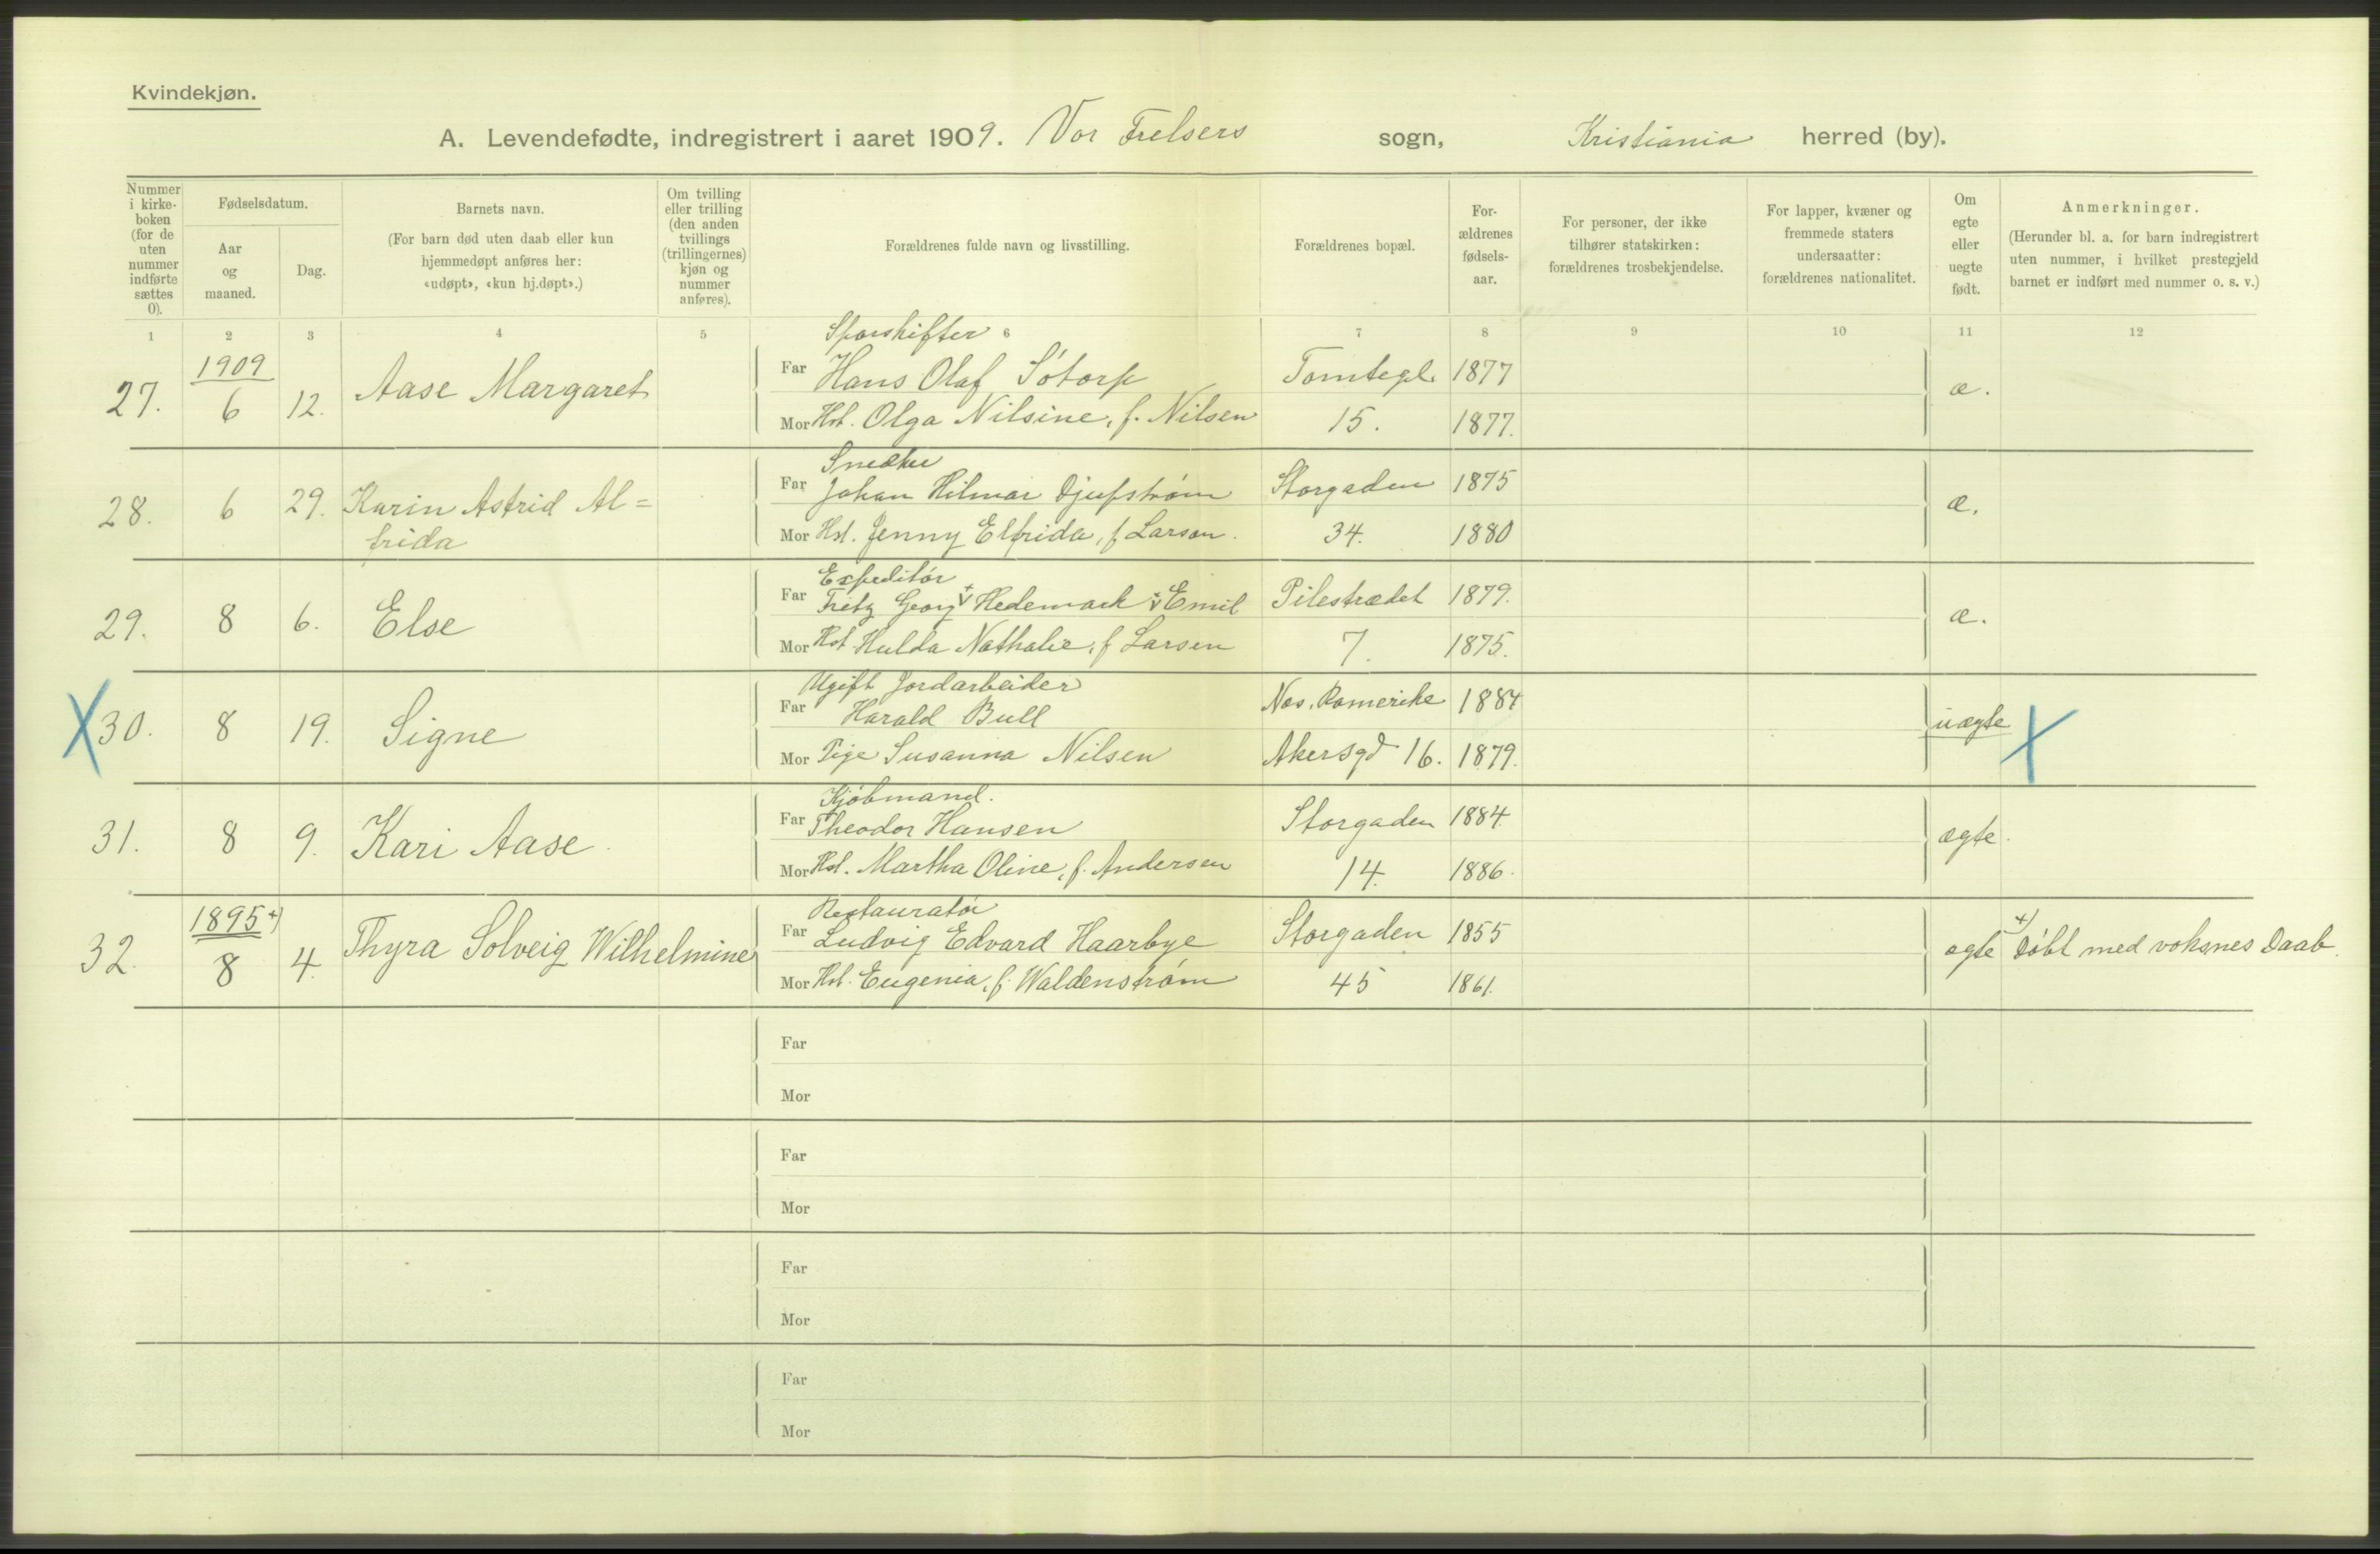 Kvindekjøn.
A. Levendefødte, indregistrert i aaret 1909. Vor Frelsers sogn, Kristiania herred (by).
Nummer i kirke-boken (for de uten nummer indførte sættes 0).
Fødselsdatum.
Aar og maaned.
Dag.
Barnets navn.
(For barn død uten daab eller kun hjemmedøpt anføres her: «udøpt», «kun hj.døpt».)
Om tvilling eller trilling (den anden tvillings (trillingernes) kjøn og nummer anføres).
Forældrenes fulde navn og livsstilling.
Forældrenes bopæl.
For-ældrenes fødsels-aar.
For personer, der ikke tilhører statskirken: forældrenes trosbekjendelse.
For lapper, kvæner og fremmede staters undersaatter: forældrenes nationalitet.
Om egte eller uegte født.
Anmerkninger.
(Herunder bl. a. for barn indregistrert uten nummer, i hvilket prestegjeld barnet er indført med nummer o. s. v.)
1 2 3 4 5 6 7 8 9 10 11 12
Sporskifter
27. 1909 6 12. Aase Margaret Far Hans Olaf Sötorp Tomtegd. 1877 æ.
Mor Hst. Olga Nilsine, f. Nilsen 15. 1877.
Snedker
28. 6 29. Karin Astrid Al= Far Johan Hilmar Djufström Storgaden 1875 æ.
frida Mor Hst. Jenny Elfrida, f Larsen. 34. 1880
Expeditör
29. 8 6. Else Far Fritz Georg Hedemark Emil Pilestrædet 1879. æ.
Mor Hst Hulda Nathalie, f Larsen 7. 1875.
Ugift Jordarbeider
X 30. 8 19. Signe Far Harald Bull Nes. Romerike 1884 uægte X
Mor Pige Susanna Nilsen Akersgd 16. 1879.
Kjöbmand.
31. 8 9. Kari Aase Far Theodor Hansen Storgaden 1884 ægte.
Mor Hst. Martha Oline, f. Andersen 14. 1886.
Restauratör
32. 1895 +) 8 4. Thyra Solveig Wilhelmine Far Ludvig Edvard Haarbye Storgaden 1855 ægte +) Döbt med voksnes Daab.
Mor Hst. Eugenia, f. Waldenström 45 1861.
Far
Mor
Far
Mor
Far
Mor
Far
Mor